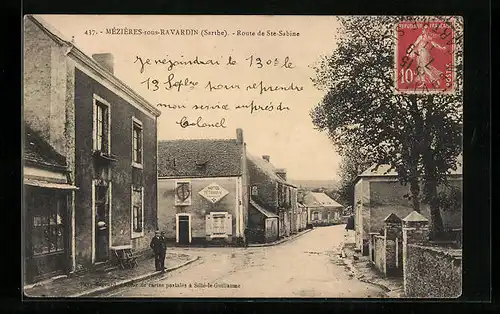 437. - MÉZIÈRES-sous-RAVARDIN (Sarthe). - Route de Ste-Sabine
REPUBLIQUE FRANÇAISE
10
POSTES
Je rejoindrai le 130e le
13 pour reprendre
mon service auprès du
Colonel
de cartes postales à Sillé-le-Guillaume